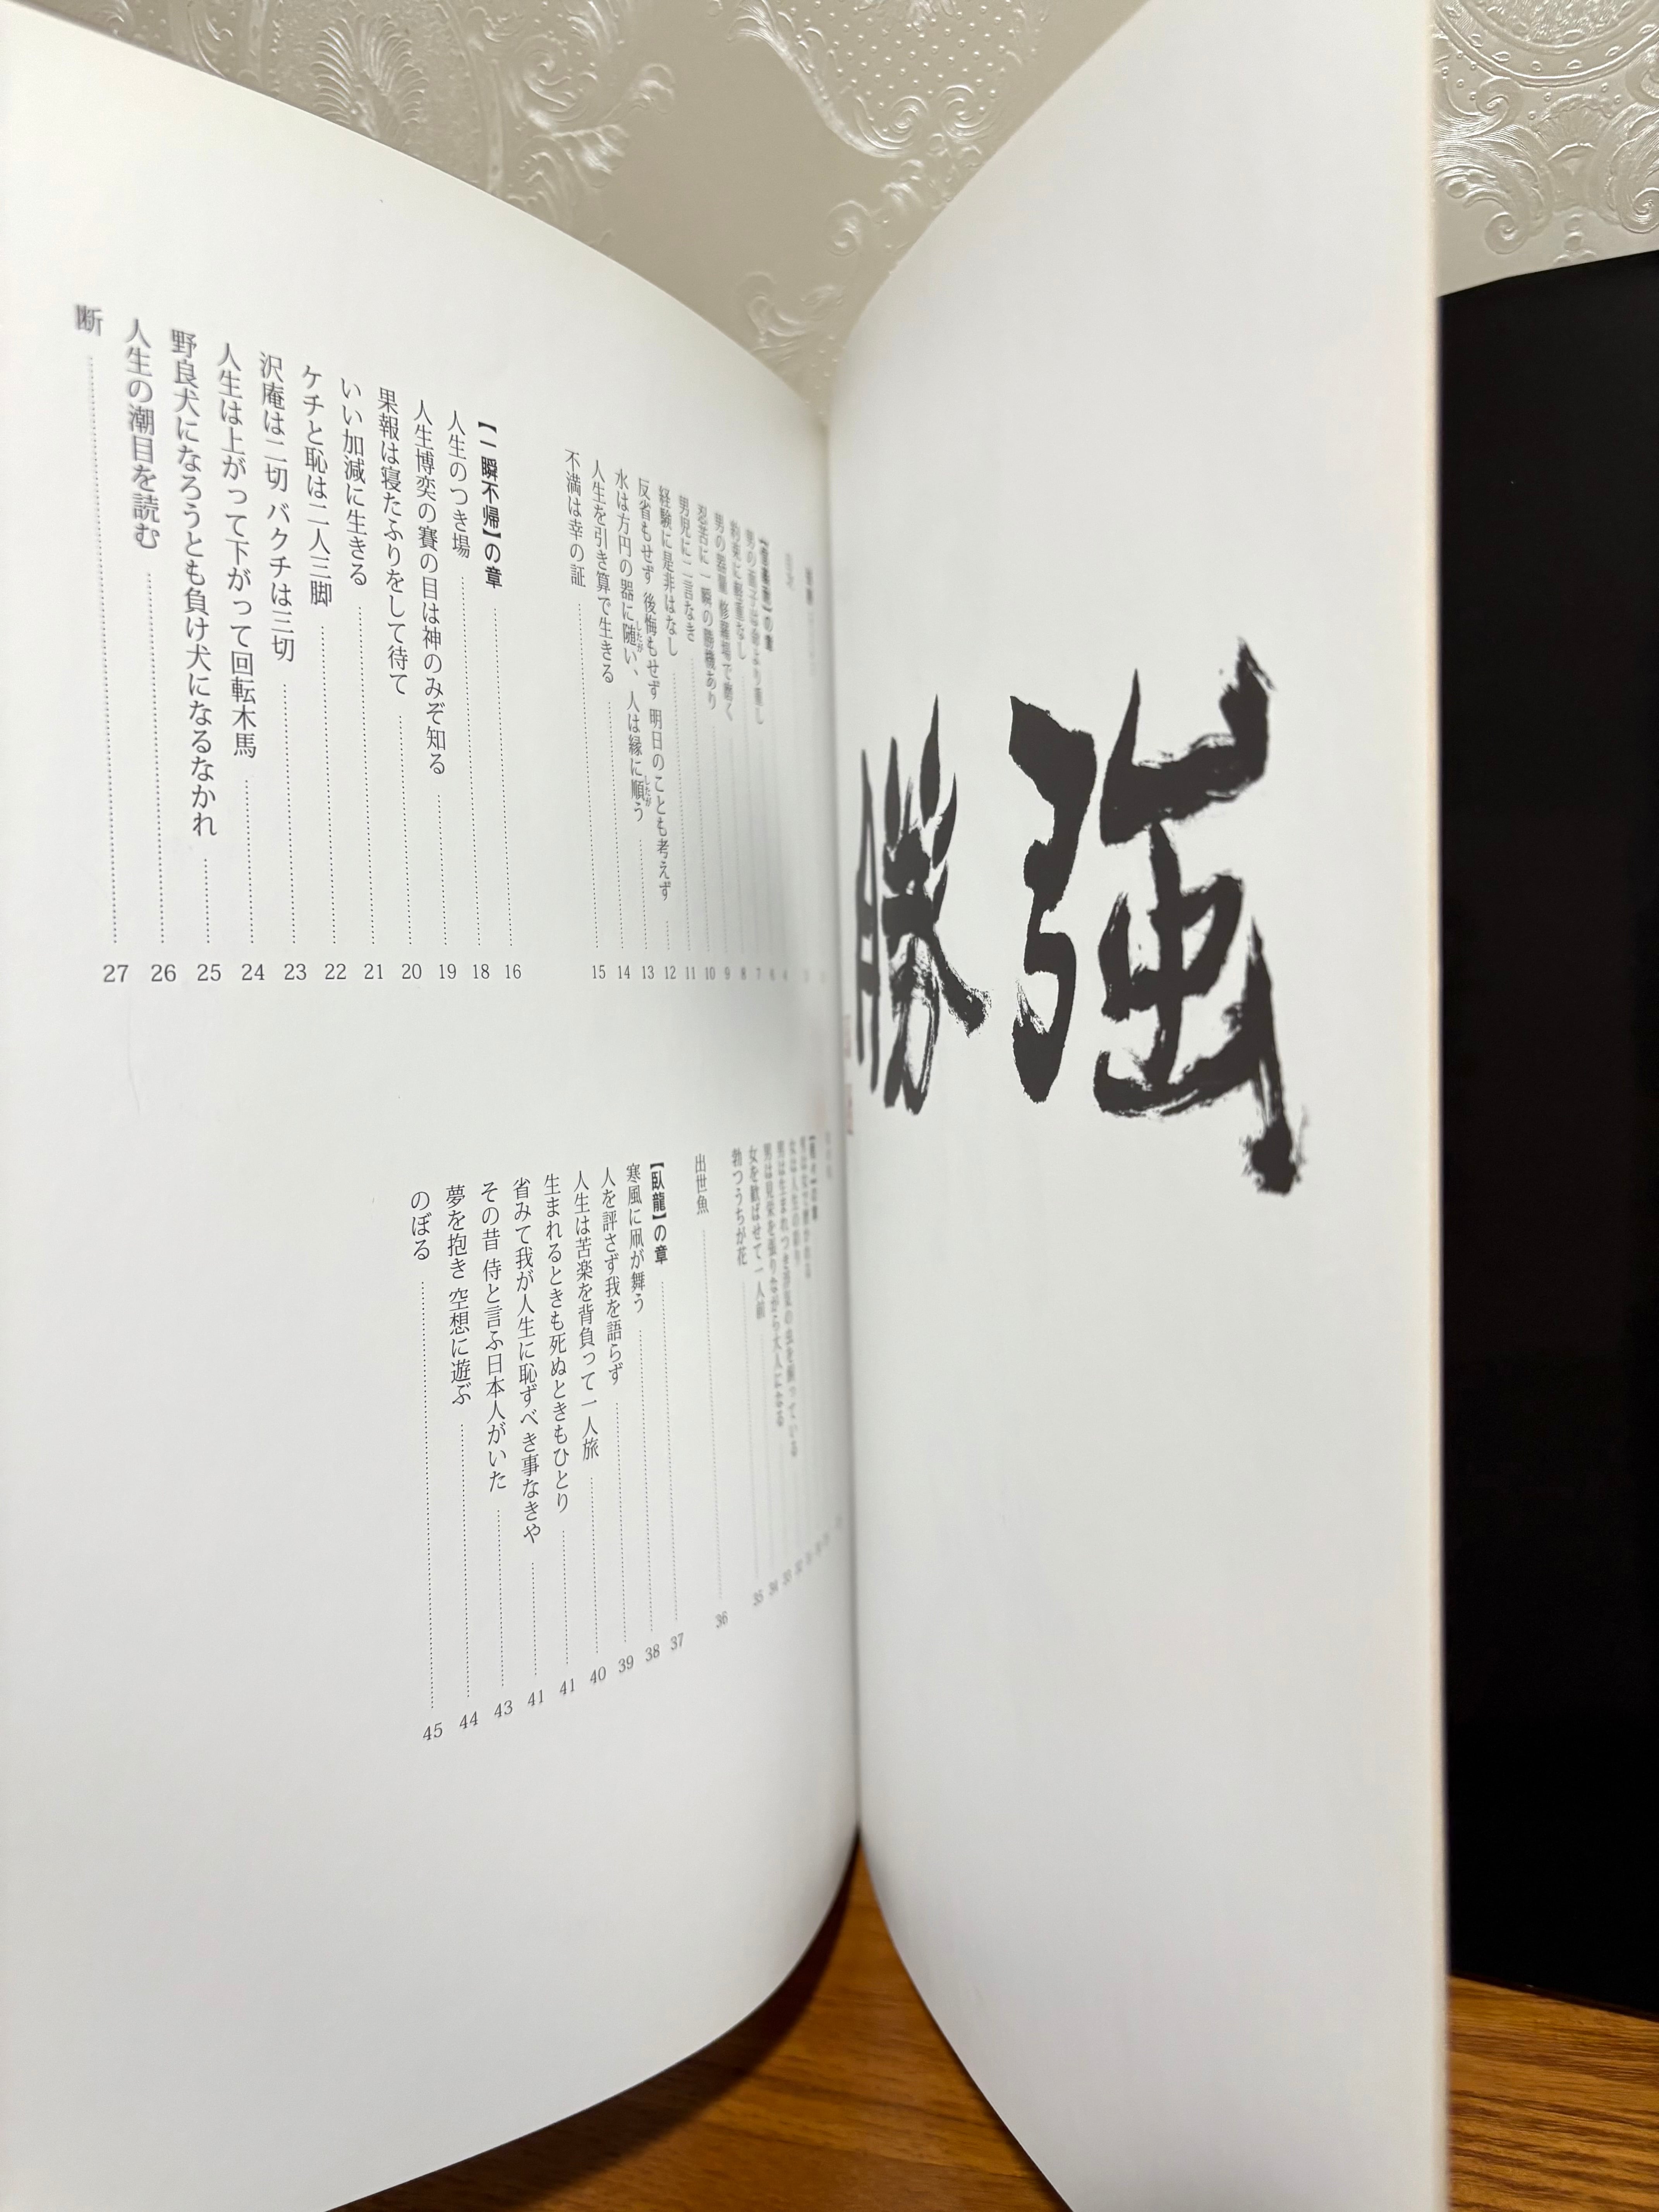 強
勝
男の面子は命より重し
約束に軽重なし
男の器量 修羅場で磨く
忍苦に一瞬の勝機あり
男児に二言なき
経験に是非はなし
反省もせず 後悔もせず 明日のことも考えず
水は方円の器に随い、人は縁に順う
したが
したが
人生を引き算で生きる
不満は幸の証
6
7
8
9
10
11
12
13
14
15
【一瞬不帰】の章 16
人生のつき場 18
人生博奕の賽の目は神のみぞ知る 19
果報は寝たふりをして待て 20
いい加減に生きる 21
ケチと恥は二人三脚 22
沢庵は二切 バクチは三切 23
人生は上がって下がって回転木馬 24
野良犬になろうとも負け犬になるなかれ 25
人生の潮目を読む 26
断 27
男は見栄を張りながら大人になる 33
女を歓ばせて一人前 34
勃つうちが花 35
出世魚 36
【臥龍】の章 37
寒風に凧が舞う 38
人を評さず我を語らず 39
人生は苦楽を背負って一人旅 40
生まれるときも死ぬときもひとり 41
省みて我が人生に恥ずべき事なきや 41
その昔 侍と言ふ日本人がいた 43
夢を抱き 空想に遊ぶ 44
のぼる 45